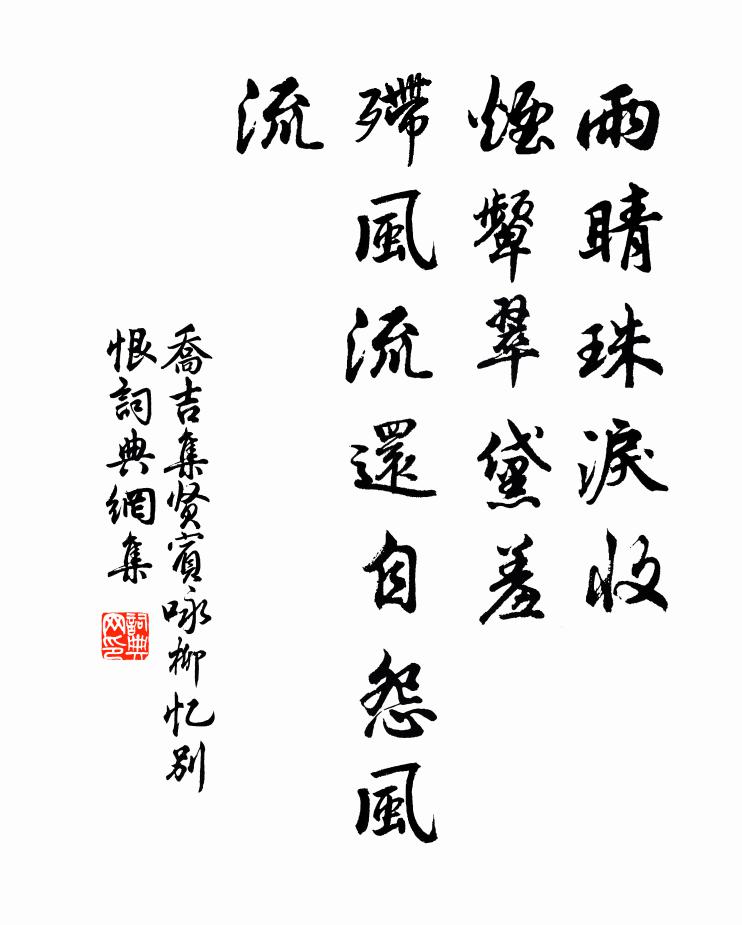 雨晴珠淚收
煙顰翠黛羞
殢風流還自怨風
流
喬吉集贤賓咏柳忆别
恨詞典網集
詞典
网印